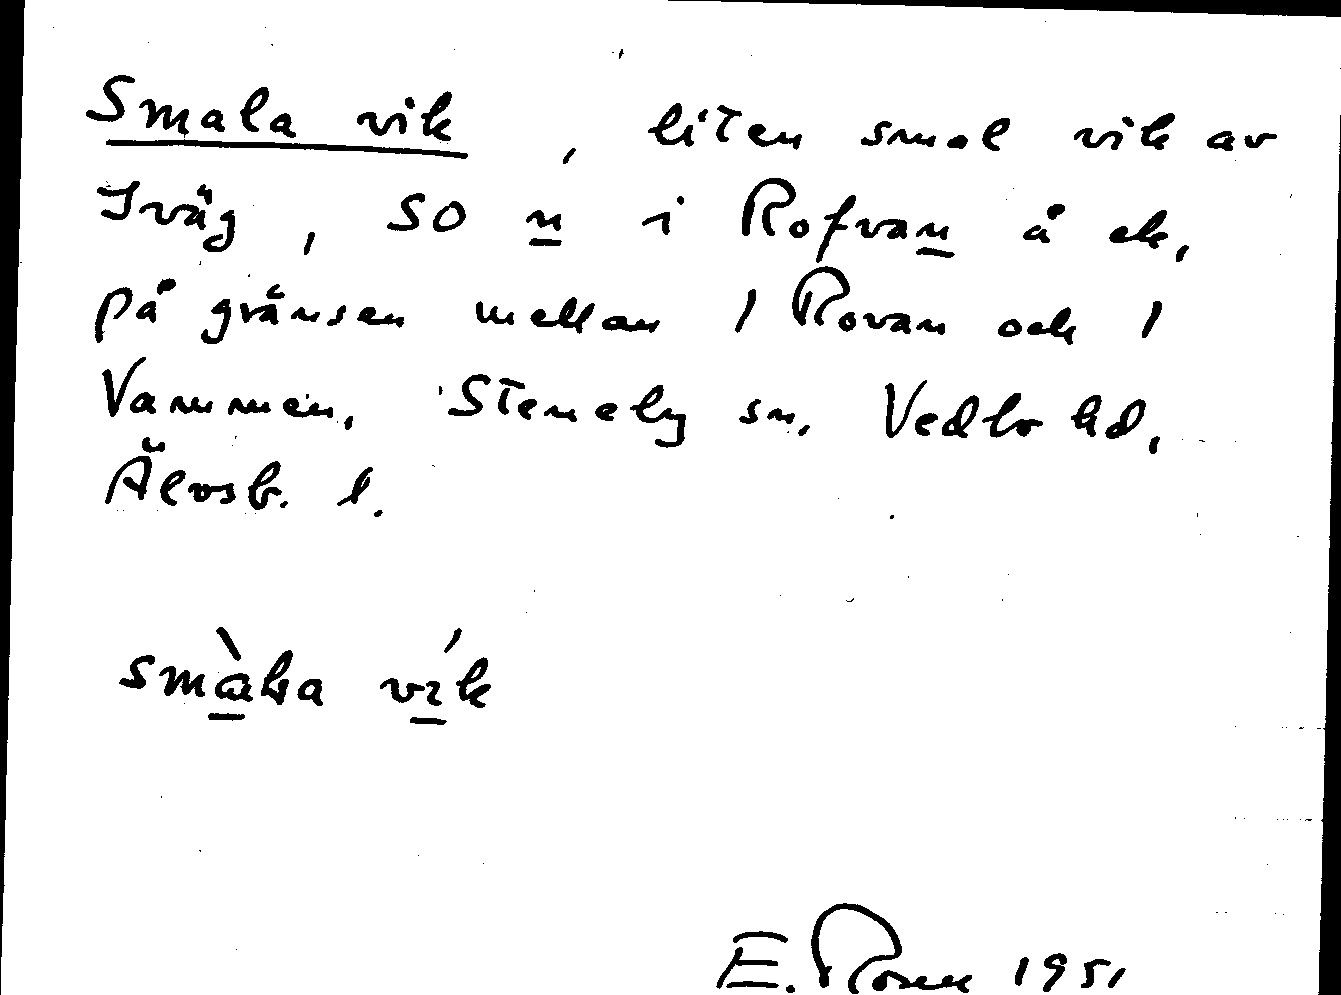 Smala vik, liten smal vik av
Iväg, SO n i Rofvan å ek,
på gränsen mellan 1 Rovan och 1
Vammen, Steneby sn, Vedbo hd,
Älvsb. l.
smàḷa vík
E. Rosen 1951